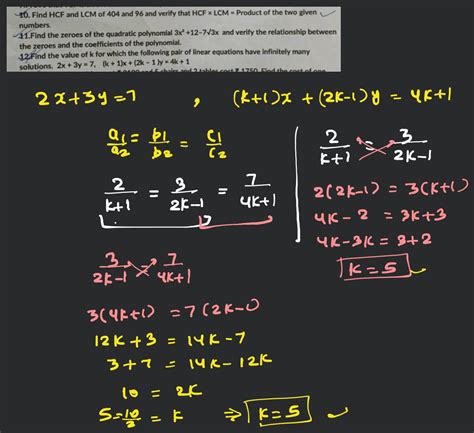 10. Find HCF and LCM of 404 and 96 and verify that HCF × LCM = Product of the two given
numbers.
11. Find the zeroes of the quadratic polynomial 3x² +12–7√3x and verify the relationship between
the zeroes and the coefficients of the polynomial.
12. Find the value of k for which the following pair of linear equations have infinitely many
solutions. 2x + 3y = 7, (k + 1)x + (2k – 1 )y = 4k + 1
2x+3y=7 , (k+1)x + (2k-1)y = 4k+1
a1/a2 = b1/b2 = c1/c2
2/(k+1) = 3/(2k-1) = 7/(4k+1)
3/(2k-1) = 7/(4k+1)
3(4k+1) = 7(2k-1)
12k+3 = 14k-7
3+7 = 14k-12k
10 = 2k
5=10/2 = k ⇒ k=5
2/(k+1) = 3/(2k-1)
2(2k-1) = 3(k+1)
4k-2 = 3k+3
4k-3k = 3+2
k=5